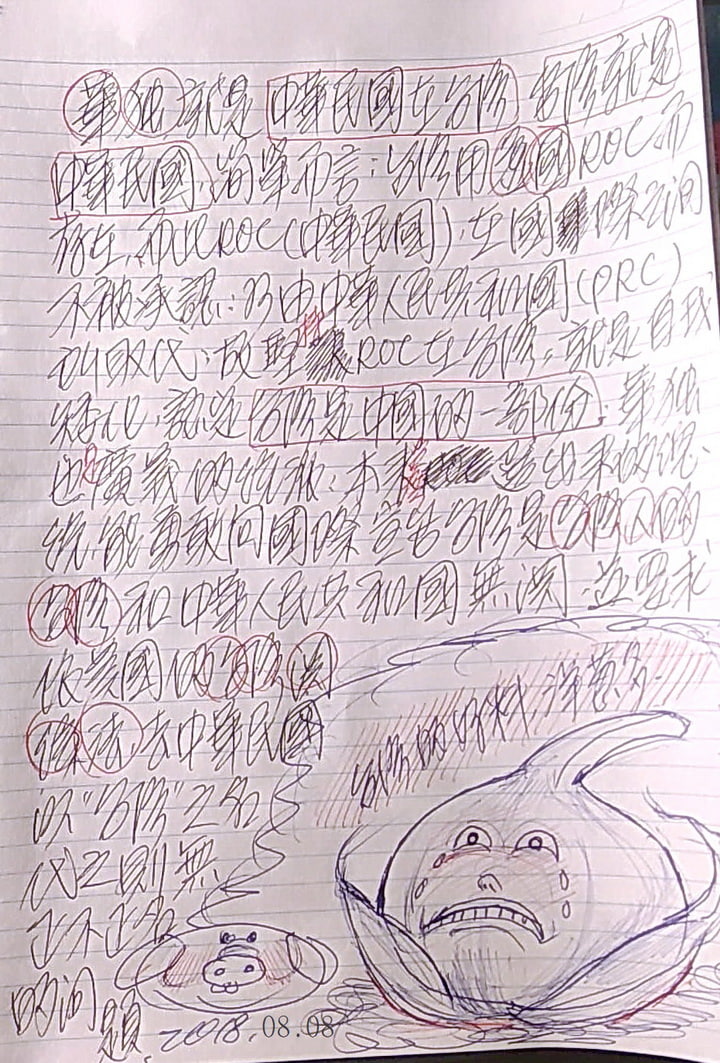 華独就是中華民國在台灣 台灣就是
中華民國，簡單而言：台灣用 國ROC而
存在，而此ROC(中華民國)，在國際之間
不被承認：乃由中華人民共和國(PRC)
所取代；故堅持ROC在台灣，就是自我
矮化，認定台灣是中國的一部份。華独
也 廣義的統派：本 是出來的總
統，能勇敢向國際宣告台灣是台灣人的
台灣和中華人民共和國無關，並要求
依美國的台灣関
係法，去中華民國
以"台灣"之名
代之則無
正不正名
的問
題
2018.08.08
台灣的好料，洋葱多